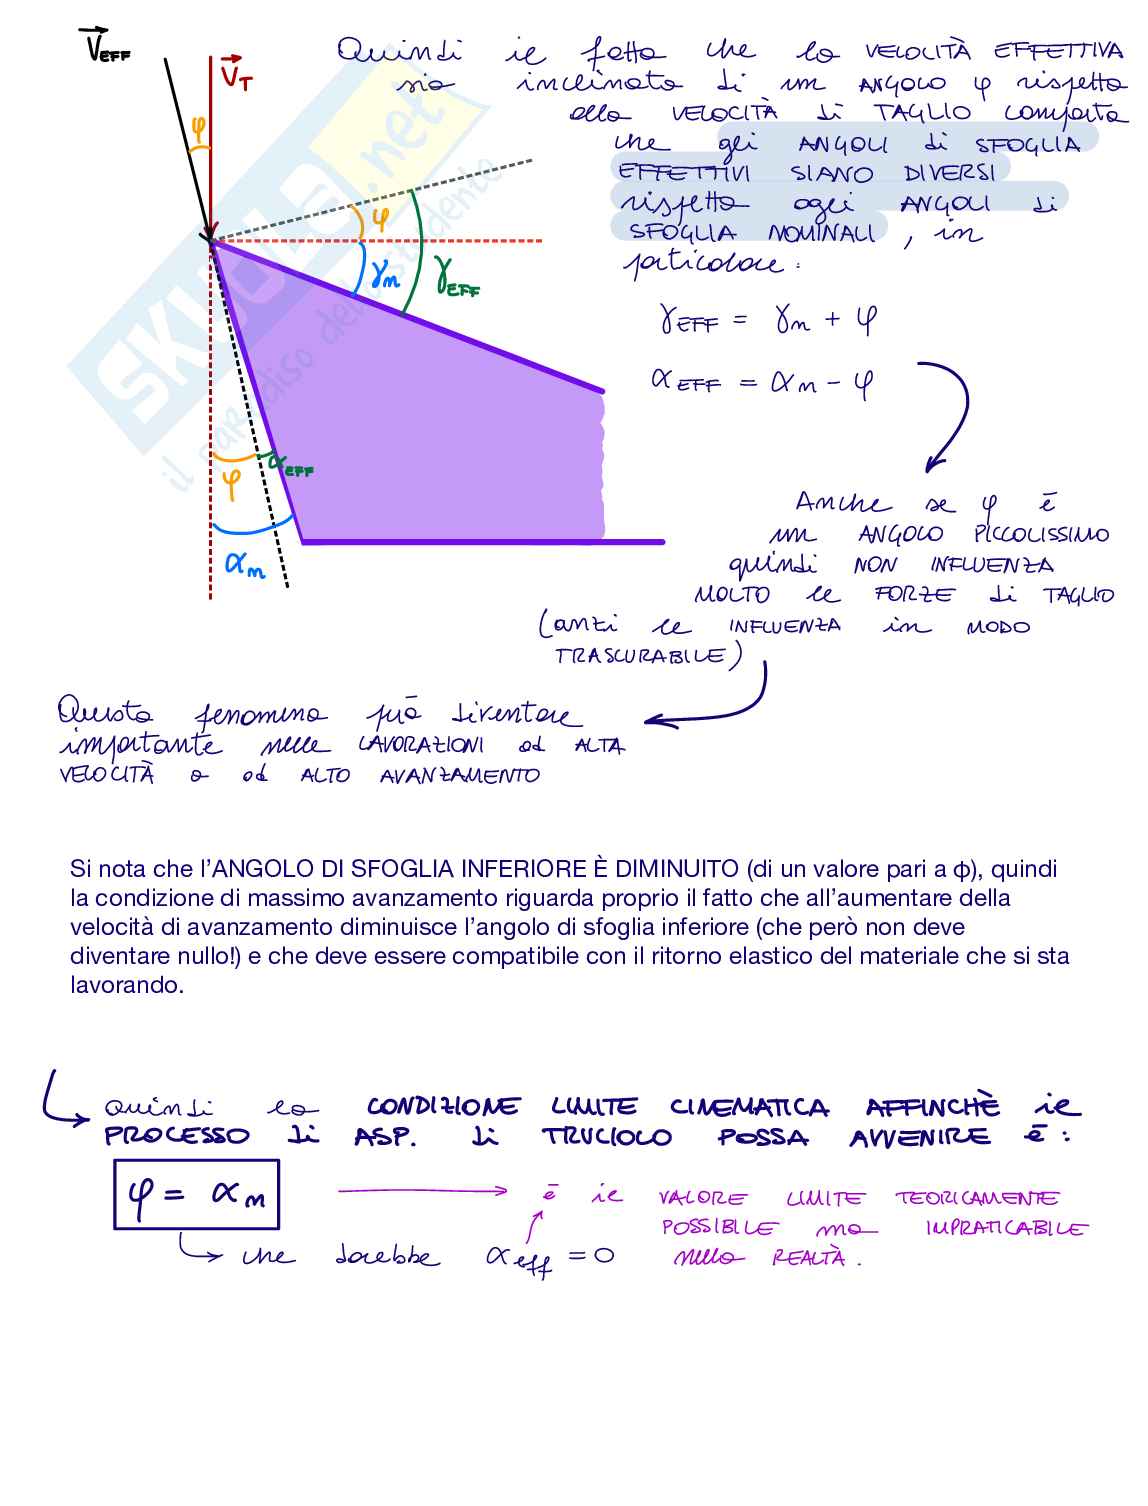 V⃗EFF
V⃗T
φ
φ
γn
γEFF
φ
αEFF
αn
SKUOLA.net
il paradiso dello studente
Quindi il fatto che la VELOCITÀ EFFETTIVA
sia inclinata di un ANGOLO φ rispetto
alla VELOCITÀ di TAGLIO comporta
che gli ANGOLI di SFOGLIA
EFFETTIVI SIANO DIVERSI
rispetto agli ANGOLI di
SFOGLIA NOMINALI, in
particolare:
γEFF = γn + φ
αEFF = αn - φ
Anche se φ è
un ANGOLO PICCOLISSIMO
quindi NON INFLUENZA
MOLTO le FORZE di TAGLIO
(anzi le INFLUENZA in MODO
TRASCURABILE)
Questo fenomeno può diventare
importante nelle LAVORAZIONI ad ALTA
VELOCITÀ o ad ALTO AVANZAMENTO
Si nota che l'ANGOLO DI SFOGLIA INFERIORE È DIMINUITO (di un valore pari a φ), quindi
la condizione di massimo avanzamento riguarda proprio il fatto che all'aumentare della
velocità di avanzamento diminuisce l'angolo di sfoglia inferiore (che però non deve
diventare nullo!) e che deve essere compatibile con il ritorno elastico del materiale che si sta
lavorando.
Quindi la CONDIZIONE LIMITE CINEMATICA AFFINCHÈ il
PROCESSO di ASP. di TRUCIOLO POSSA AVVENIRE è:
φ = αn
è il VALORE LIMITE TEORICAMENTE
POSSIBILE ma IMPRATICABILE
nella REALTÀ.
che darebbe αeff = 0